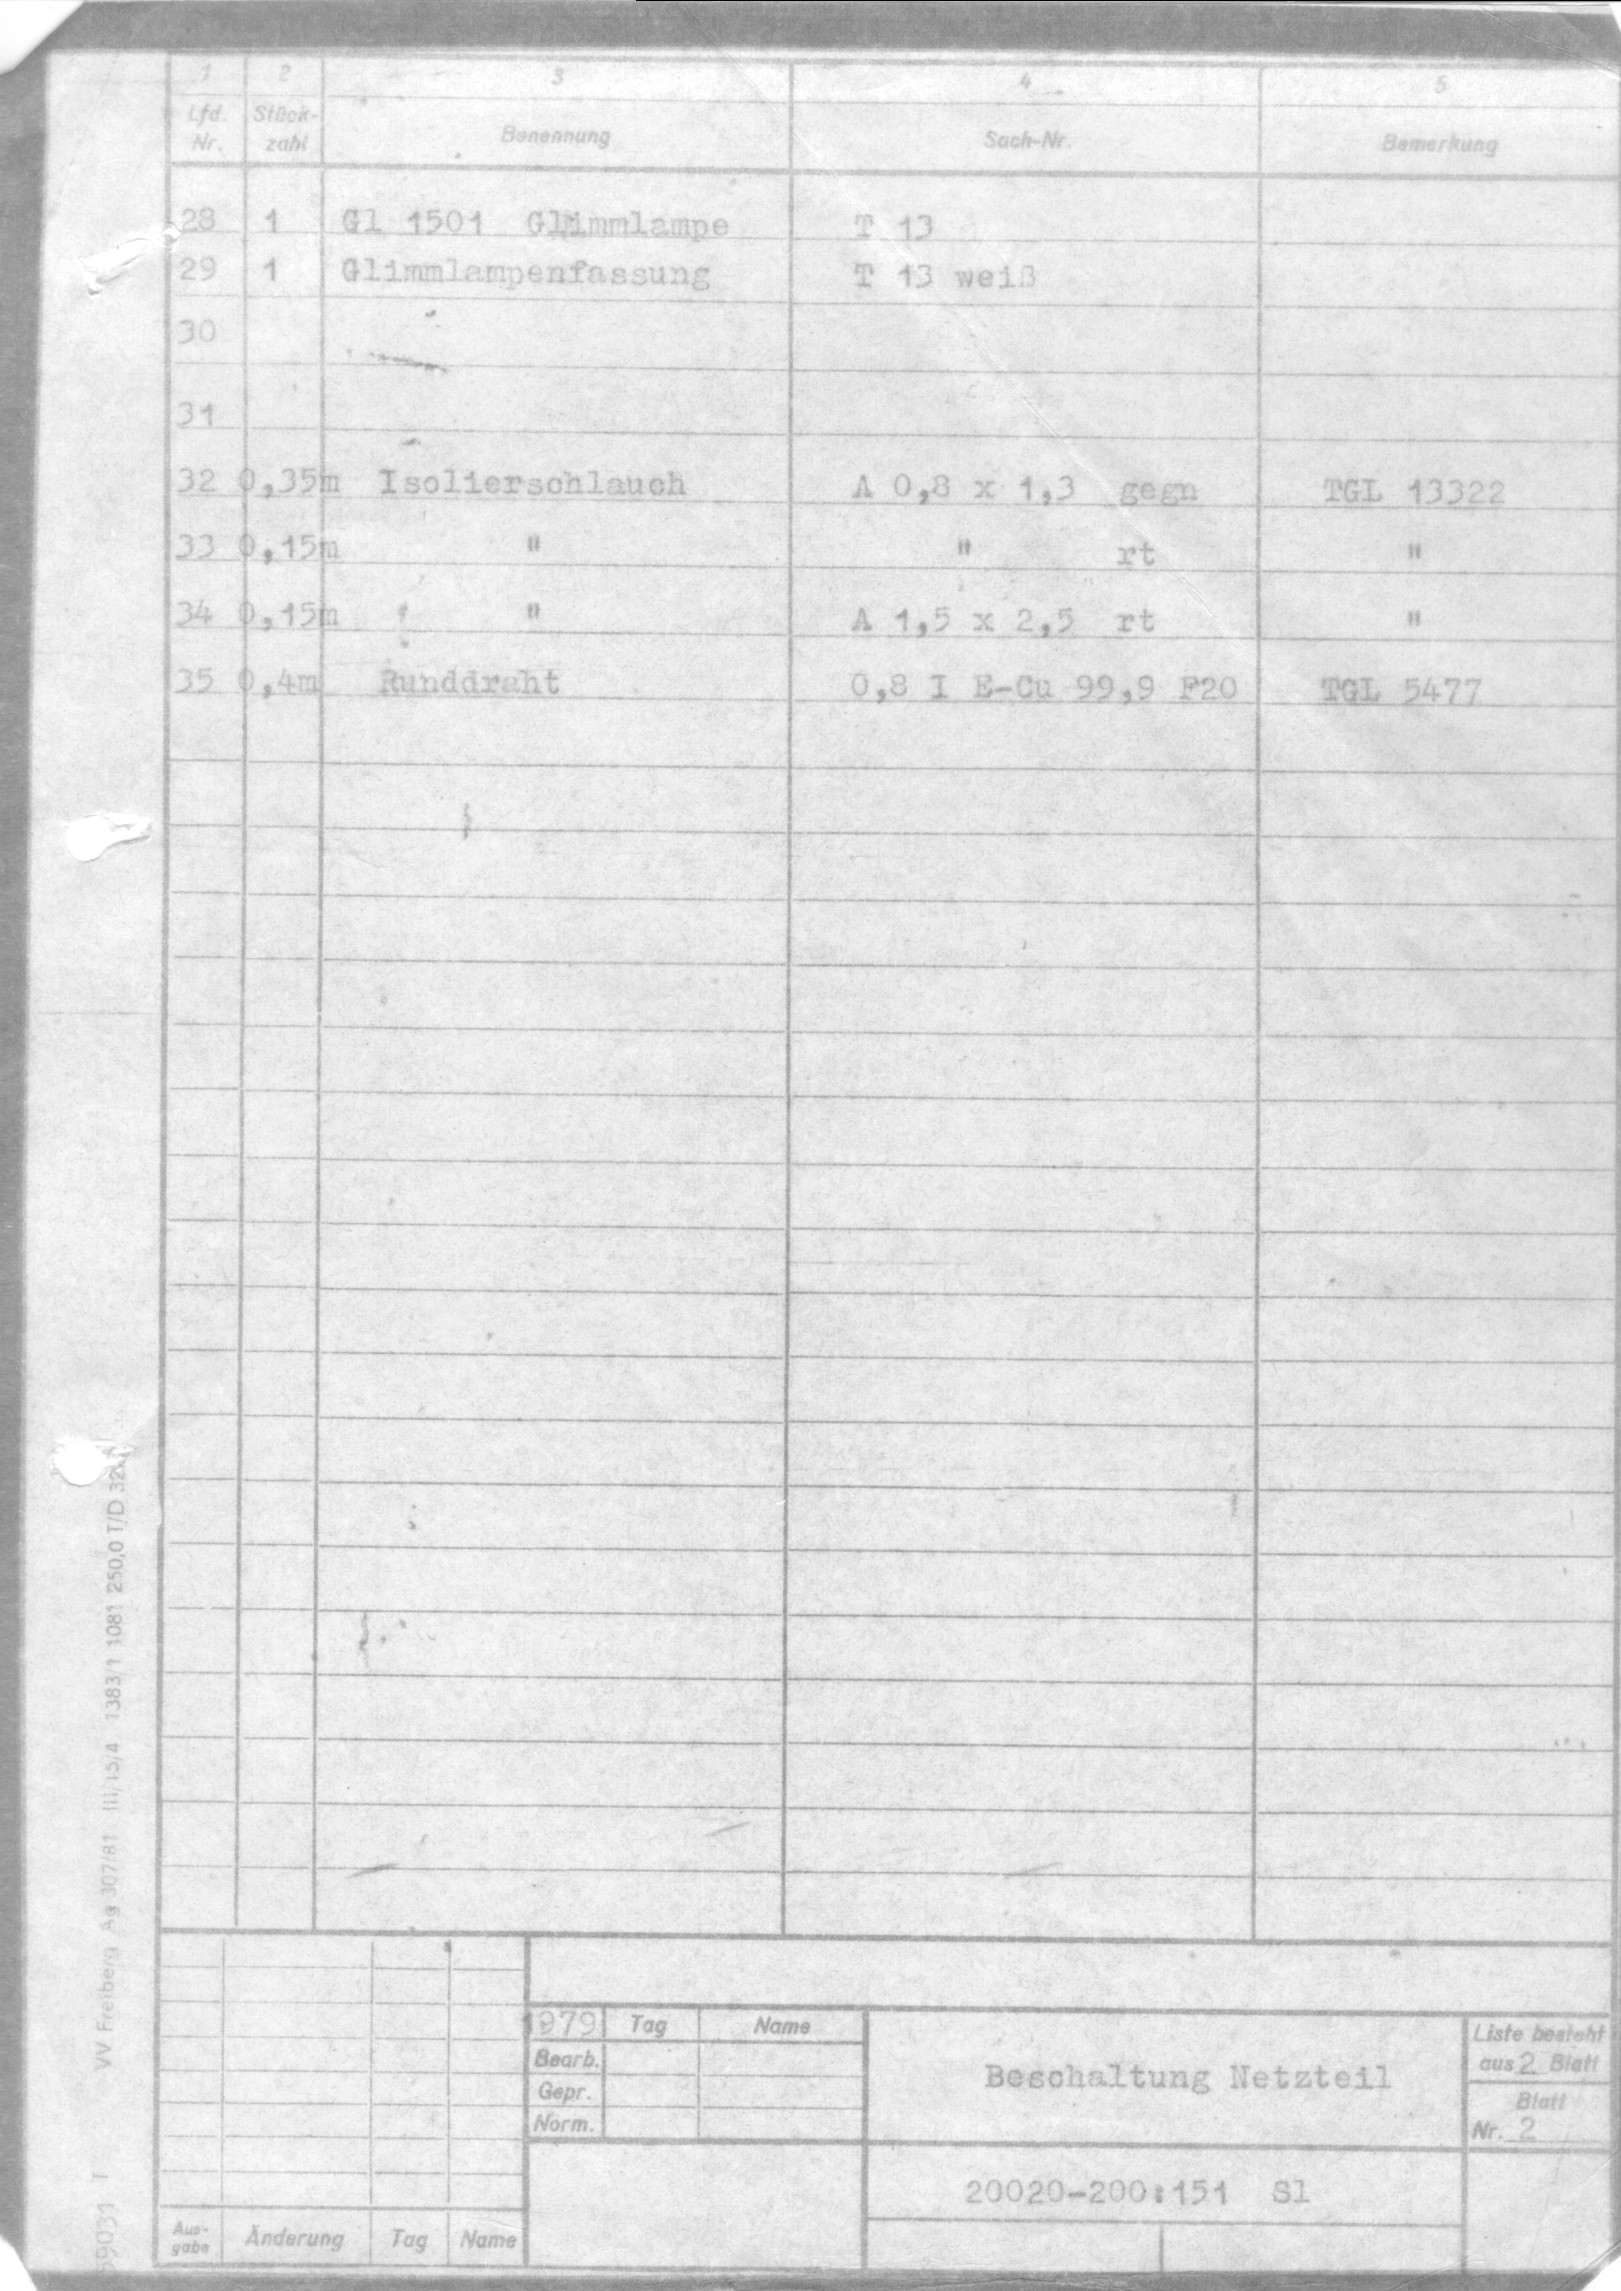 1 2 3 4 5
Lfd. Nr. Stück- zahl Benennung Sach-Nr. Bemerkung
28 1 Gl 1501 Glimmlampe T 13
29 1 Glimmlampenfassung T 13 weiß
30
31
32 0,35m Isolierschlauch A 0,8 x 1,3 gegn TGL 13322
33 0,15m " " rt "
34 0,15m " A 1,5 x 2,5 rt "
35 0,4m Runddraht 0,8 I E-Cu 99,9 F20 TGL 5477
1979 Tag Name
Bearb.
Gepr.
Norm.
Beschaltung Netzteil
Liste besteht
aus 2 Blatt
Blatt
Nr. 2
20020-200:151 Sl
Aus-
gabe Änderung Tag Name
VV Freiberg Ag 307/81 III/15/4 1383/1 1081 250,0 T/D